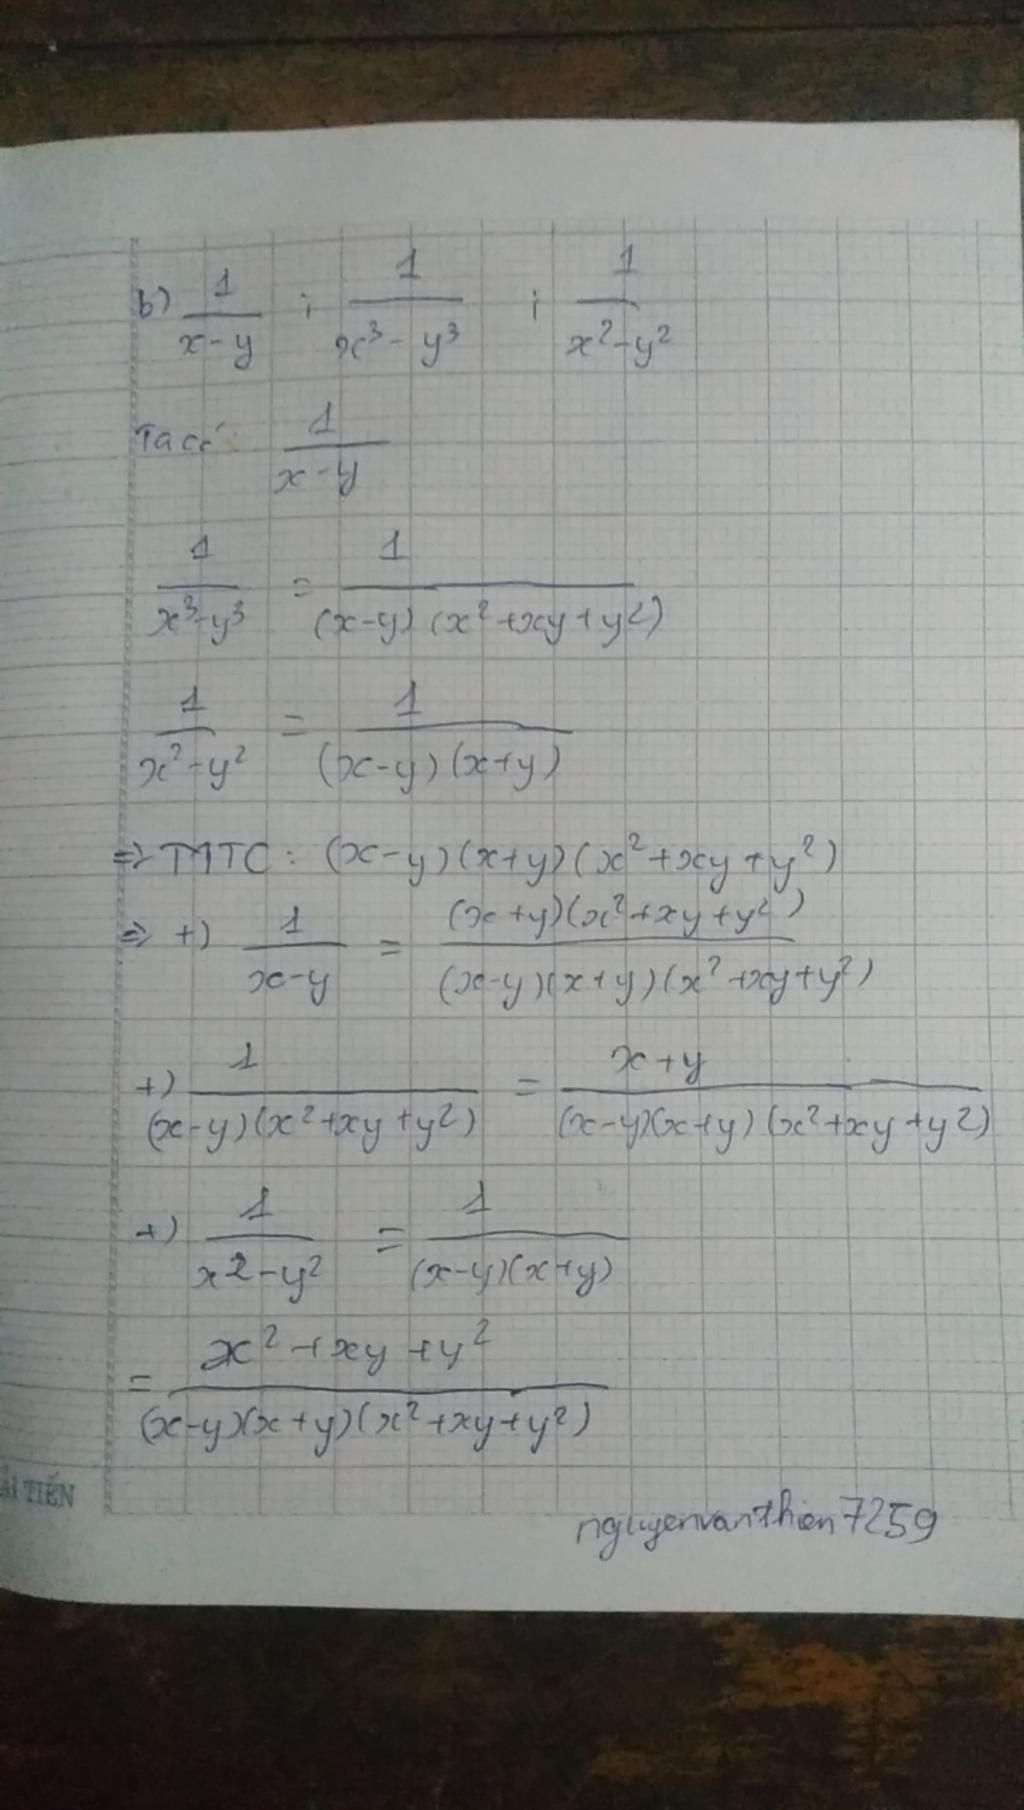 b) 1/(x-y) ; 1/(x³-y³) ; 1/(x²-y²)
Ta có: 1/(x-y)
1/(x³-y³) = 1/((x-y)(x²+xy+y²))
1/(x²-y²) = 1/((x-y)(x+y))
=> MTC: (x-y)(x+y)(x²+xy+y²)
=> +) 1/(x-y) = (x+y)(x²+xy+y²)/((x-y)(x+y)(x²+xy+y²))
+) 1/((x-y)(x²+xy+y²)) = (x+y)/((x-y)(x+y)(x²+xy+y²))
+) 1/(x²-y²) = 1/((x-y)(x+y))
= (x²+xy+y²)/((x-y)(x+y)(x²+xy+y²))
TIẾN
nguyenvanthien7259